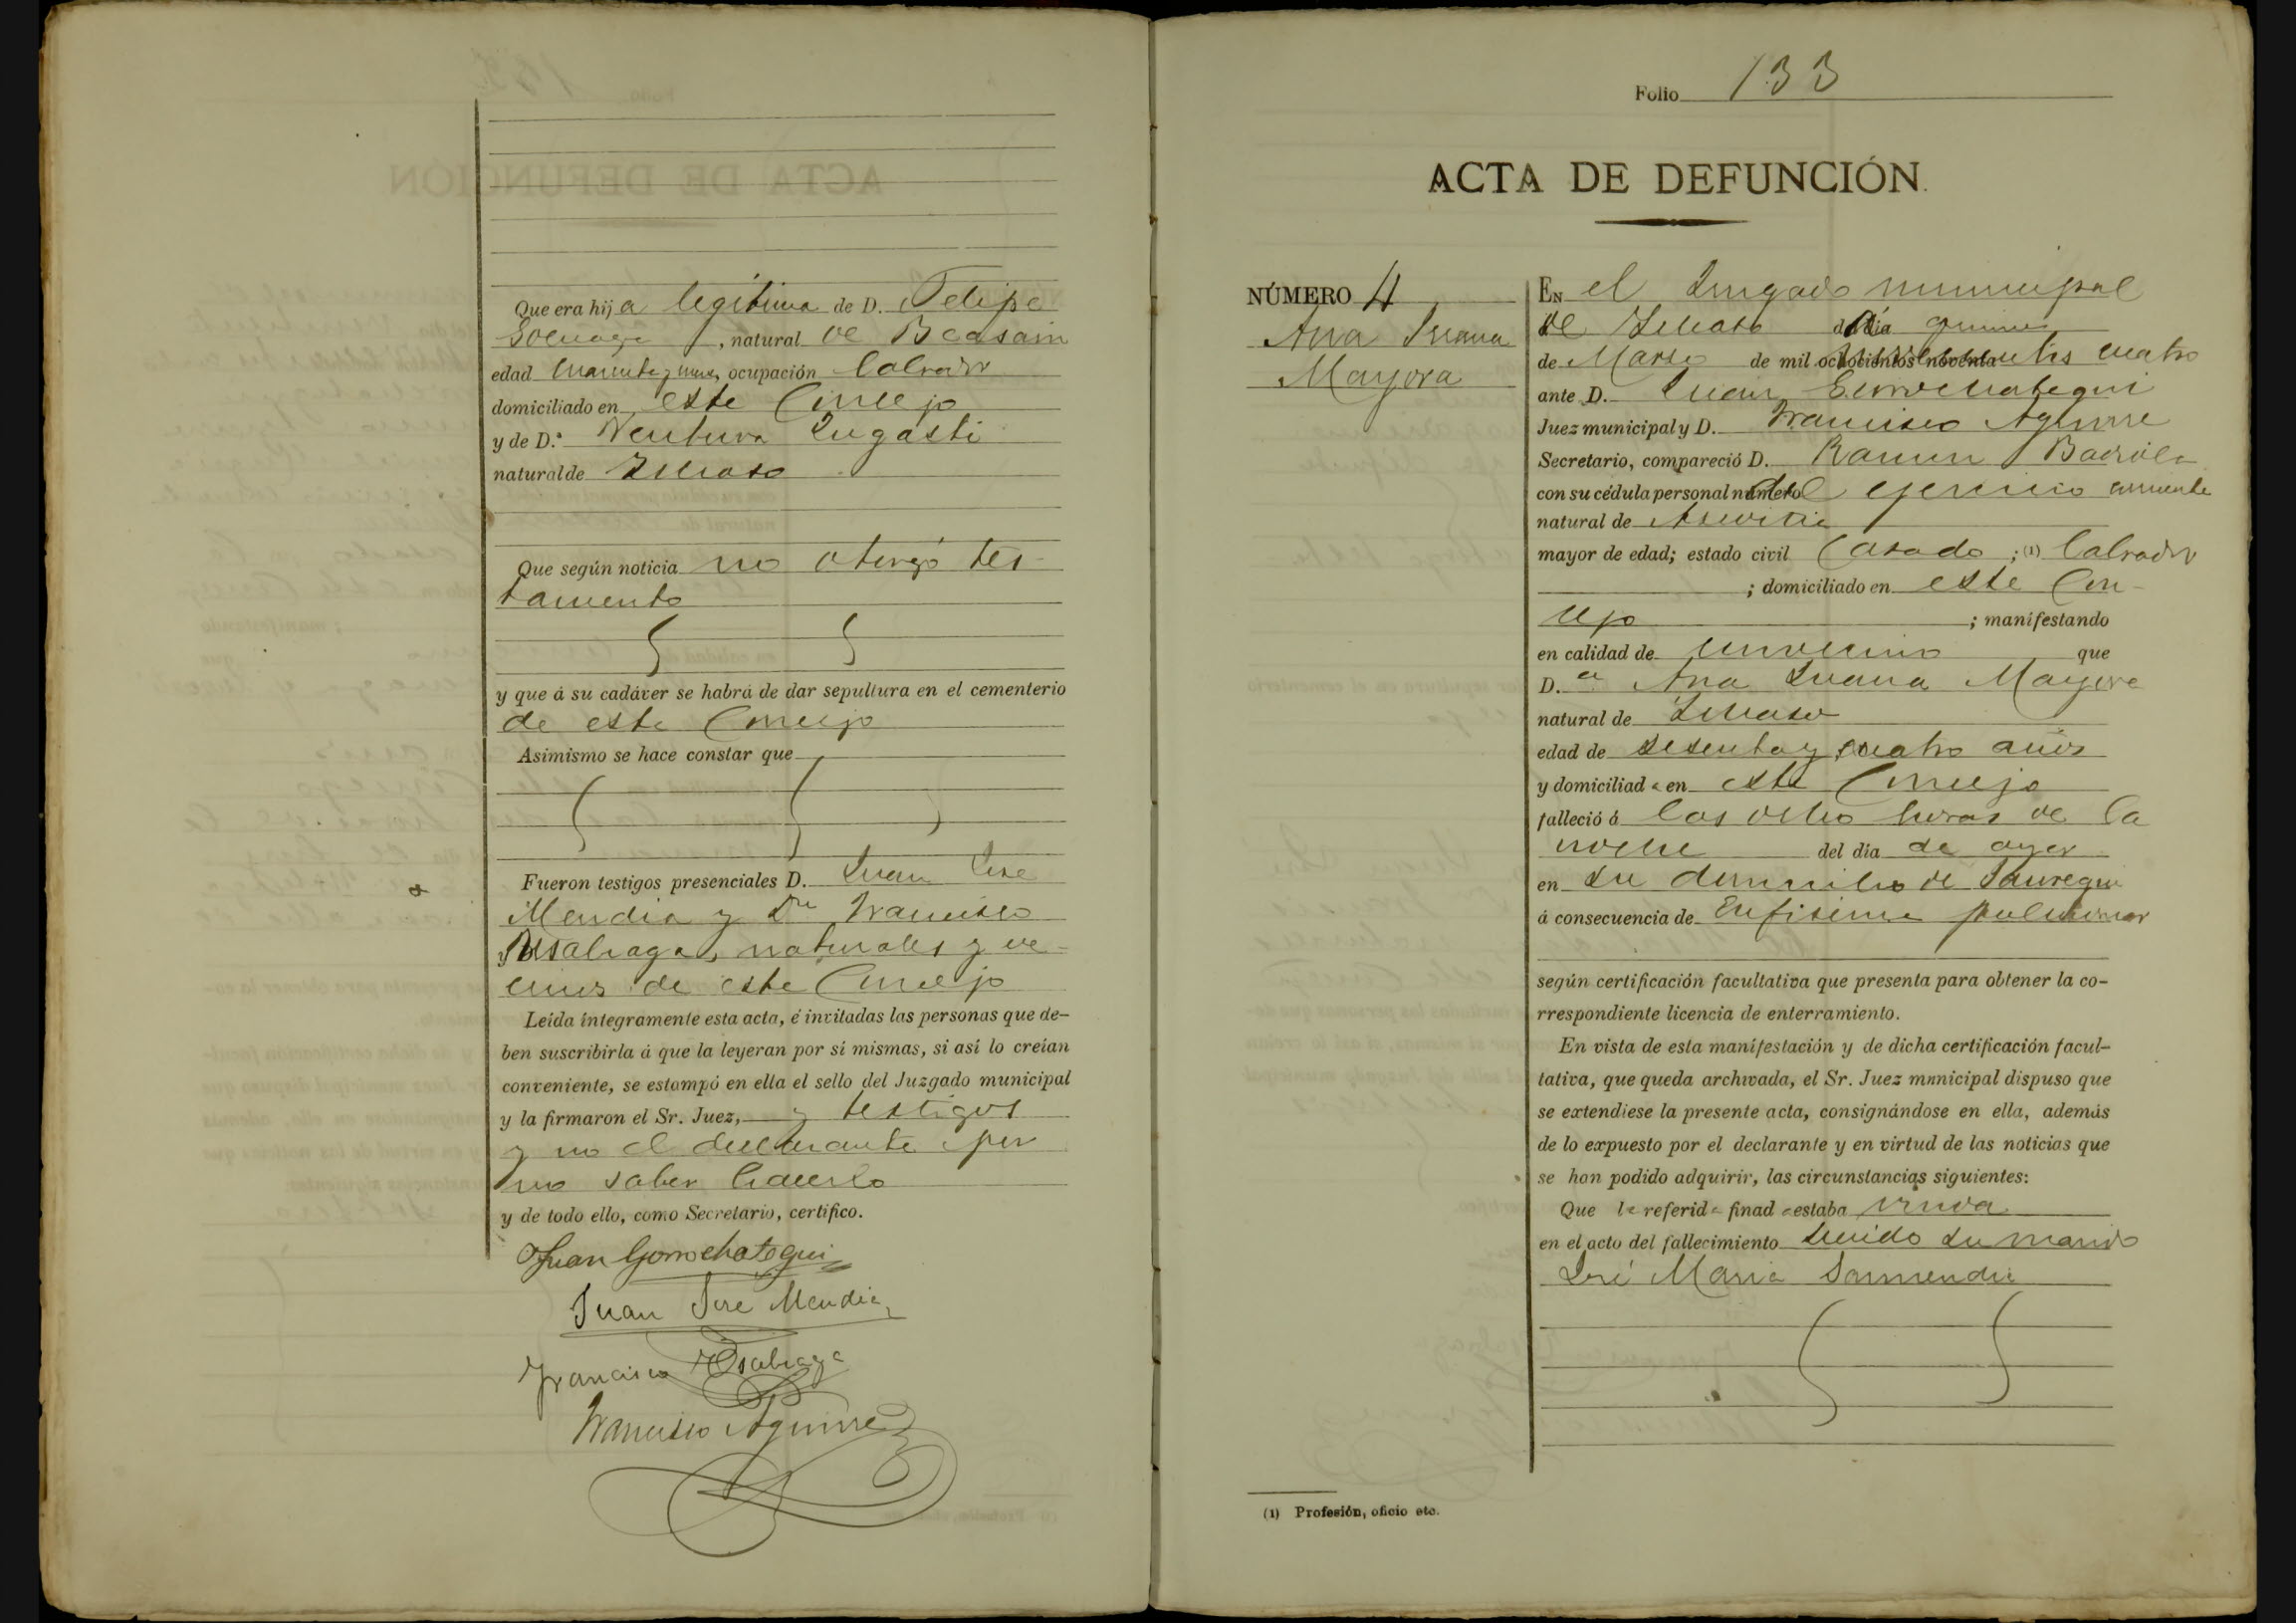 Que era hija legítima de D. Felipe
, natural de Beasain
edad cuarenta y nueve, ocupación labrador
domiciliado en este Concejo
y de D.ª Ventura Lugasti
natural de
Que según noticia no otorgó tes-
tamento
y que á su cadáver se habrá de dar sepultura en el cementerio
de este Concejo
Asimismo se hace constar que
Fueron testigos presenciales D. Juan José
Mendia y Dn Francisco
naturales y ve-
cinos de este Concejo
Leída íntegramente esta acta, é invitadas las personas que de-
ben suscribirla á que la leyeran por sí mismas, si así lo creían
conveniente, se estampó en ella el sello del Juzgado municipal
y la firmaron el Sr. Juez, y testigos
y no el declarante por
no saber hacerlo
y de todo ello, como Secretario, certifico.
Juan Gorrochategui
Juan José Mendia
Francisco
Francisco Aguirre
Folio 133
ACTA DE DEFUNCIÓN.
NÚMERO 4
Ana Juana
Mayora
EN el Juzgado municipal
de día quince
de Marzo de mil novecientos cuatro
ante D. Juan Gorrochategui
Juez municipal y D. Francisco Aguirre
Secretario, compareció D. Ramon Badiola
con su cédula personal del ejercicio corriente
natural de Azcoitia
mayor de edad; estado civil Casado; (1) labrador
; domiciliado en este Con-
cejo ; manifestando
en calidad de convecino que
D.ª Ana Juana Mayora
natural de
edad de sesenta y cuatro años
y domiciliada en este Concejo
falleció á las ocho horas de la
noche del día de ayer
en su domicilio de Jauregui
á consecuencia de Enfisema pulmonar
según certificación facultativa que presenta para obtener la co-
rrespondiente licencia de enterramiento.
En vista de esta manifestación y de dicha certificación facul-
tativa, que queda archivada, el Sr. Juez municipal dispuso que
se extendiese la presente acta, consignándose en ella, además
de lo expuesto por el declarante y en virtud de las noticias que
se han podido adquirir, las circunstancias siguientes:
Que la referida finada estaba viuda
en el acto del fallecimiento siendo su marido
José Maria
(1) Profesión, oficio etc.